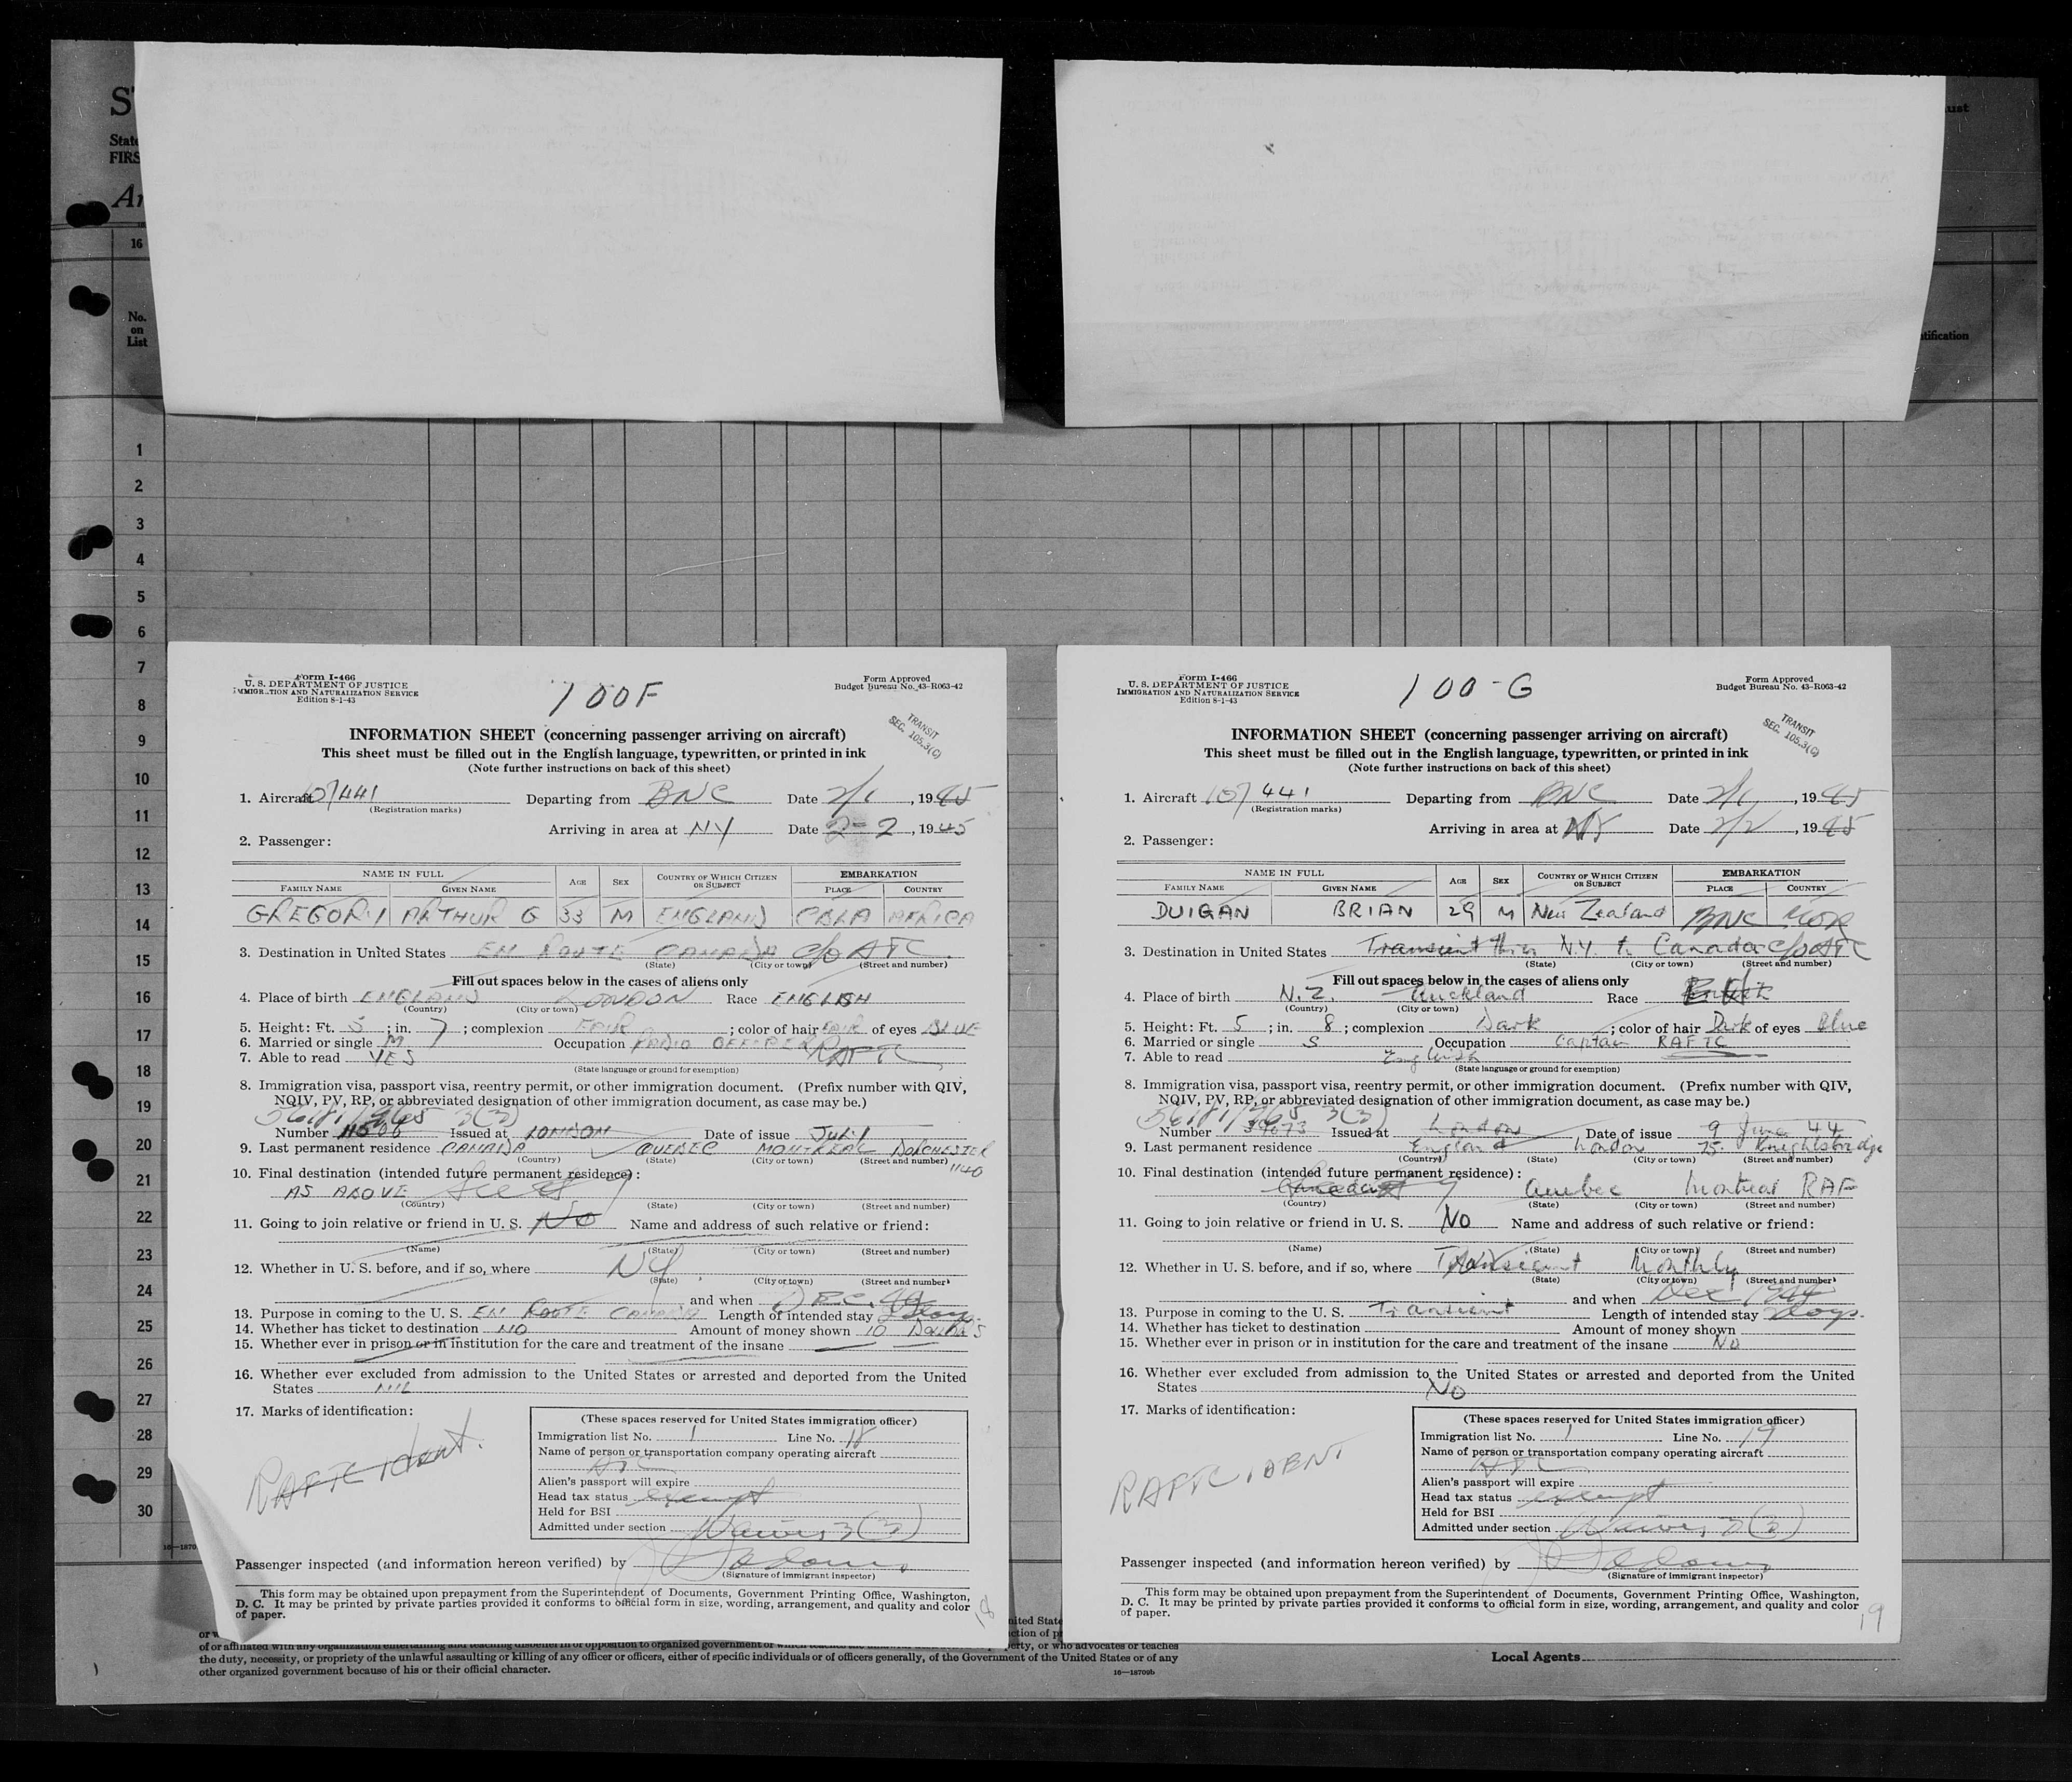 ST
State
FIRS
Ar
ust
16
No.
on
List
tification
1
2
3
4
5
6
7
8
9
10
11
12
13
14
15
16
17
18
19
20
21
22
23
24
25
26
27
28
29
30
Form I-466
U. S. DEPARTMENT OF JUSTICE
IMMIGRATION AND NATURALIZATION SERVICE
Edition 8-1-43
100F
Form Approved
Budget Bureau No. 43-R063-42
TRANSIT
SEC. 105.3(G)
INFORMATION SHEET (concerning passenger arriving on aircraft)
This sheet must be filled out in the English language, typewritten, or printed in ink
(Note further instructions on back of this sheet)
1. Aircraft 107441 Departing from BNC Date 2/1, 1945
(Registration marks)
Arriving in area at NY Date 2-2, 1945
2. Passenger:
NAME IN FULL AGE SEX COUNTRY OF WHICH CITIZEN OR SUBJECT EMBARKATION
FAMILY NAME GIVEN NAME PLACE COUNTRY
GREGORY ARTHUR G 33 M ENGLAND CBLA AFRICA
3. Destination in United States EN ROUTE CANADA C/O ATC.
(State) (City or town) (Street and number)
Fill out spaces below in the cases of aliens only
4. Place of birth ENGLAND LONDON Race ENGLISH
(Country) (City or town)
5. Height: Ft. 5; in. 7; complexion FAIR; color of hair FAIR of eyes BLUE
6. Married or single M Occupation RADIO OFFICER RAFTC
7. Able to read YES
(State language or ground for exemption)
8. Immigration visa, passport visa, reentry permit, or other immigration document. (Prefix number with QIV,
NQIV, PV, RP, or abbreviated designation of other immigration document, as case may be.)
56181/265 3(3)
Number 11506 Issued at LONDON Date of issue JULY
9. Last permanent residence CANADA QUEBEC MONTREAL DORCHESTER
(Country) (State) (City or town) (Street and number) 1140
10. Final destination (intended future permanent residence):
AS ABOVE
(Country) (State) (City or town) (Street and number)
11. Going to join relative or friend in U. S. No Name and address of such relative or friend:
(Name) (State) (City or town) (Street and number)
12. Whether in U. S. before, and if so, where NY
(State) (City or town) (Street and number)
and when DEC. 44
13. Purpose in coming to the U. S. EN ROUTE CANADA Length of intended stay 2 days
14. Whether has ticket to destination NO Amount of money shown 10 Dollars
15. Whether ever in prison or in institution for the care and treatment of the insane
16. Whether ever excluded from admission to the United States or arrested and deported from the United
States NIL
17. Marks of identification:
RAFTC ident.
(These spaces reserved for United States immigration officer)
Immigration list No. 1 Line No. 18
Name of person or transportation company operating aircraft
ATC
Alien's passport will expire
Head tax status exempt
Held for BSI
Admitted under section Waiver 3(3)
Passenger inspected (and information hereon verified) by
(Signature of immigrant inspector)
This form may be obtained upon prepayment from the Superintendent of Documents, Government Printing Office, Washington,
D. C. It may be printed by private parties provided it conforms to official form in size, wording, arrangement, and quality and color
of paper.
18
Form I-466
U. S. DEPARTMENT OF JUSTICE
IMMIGRATION AND NATURALIZATION SERVICE
Edition 8-1-43
100-G
Form Approved
Budget Bureau No. 43-R063-42
TRANSIT
SEC. 105.3(G)
INFORMATION SHEET (concerning passenger arriving on aircraft)
This sheet must be filled out in the English language, typewritten, or printed in ink
(Note further instructions on back of this sheet)
1. Aircraft 107441 Departing from BNC Date 2/1, 1945
(Registration marks)
Arriving in area at NY Date 2/2, 1945
2. Passenger:
NAME IN FULL AGE SEX COUNTRY OF WHICH CITIZEN OR SUBJECT EMBARKATION
FAMILY NAME GIVEN NAME PLACE COUNTRY
DUIGAN BRIAN 29 M New Zealand BNC MOR
3. Destination in United States Transient thru N.Y. to Canada c/o ATC
(State) (City or town) (Street and number)
Fill out spaces below in the cases of aliens only
4. Place of birth N.Z. Auckland Race
(Country) (City or town)
5. Height: Ft. 5; in. 8; complexion Dark; color of hair Dark of eyes Blue
6. Married or single S Occupation Captain RAFTC
7. Able to read English
(State language or ground for exemption)
8. Immigration visa, passport visa, reentry permit, or other immigration document. (Prefix number with QIV,
NQIV, PV, RP, or abbreviated designation of other immigration document, as case may be.)
56181/265 3(3)
Number 39673 Issued at London Date of issue 9 June 44
9. Last permanent residence England London 75 Knightsbridge
(Country) (State) (City or town) (Street and number)
10. Final destination (intended future permanent residence):
Canada Quebec Montreal RAF
(Country) (State) (City or town) (Street and number)
11. Going to join relative or friend in U. S. No Name and address of such relative or friend:
(Name) (State) (City or town) (Street and number)
12. Whether in U. S. before, and if so, where Transient Monthly
(State) (City or town) (Street and number)
and when Dec 1944
13. Purpose in coming to the U. S. Transient Length of intended stay 2 days.
14. Whether has ticket to destination Amount of money shown
15. Whether ever in prison or in institution for the care and treatment of the insane No
16. Whether ever excluded from admission to the United States or arrested and deported from the United
States No
17. Marks of identification:
RAFTC IDENT
(These spaces reserved for United States immigration officer)
Immigration list No. 1 Line No. 19
Name of person or transportation company operating aircraft
ATC
Alien's passport will expire
Head tax status exempt
Held for BSI
Admitted under section Waiver 3(3)
Passenger inspected (and information hereon verified) by
(Signature of immigrant inspector)
This form may be obtained upon prepayment from the Superintendent of Documents, Government Printing Office, Washington,
D. C. It may be printed by private parties provided it conforms to official form in size, wording, arrangement, and quality and color
of paper.
19
of or affiliated with any organization entertaining and teaching disbelief in or opposition to organized government or
the duty, necessity, or propriety of the unlawful assaulting or killing of any officer or officers, either of specific individuals or of officers generally, of the Government of the United States or of any
other organized government because of his or their official character.
16—18709b
Local Agents